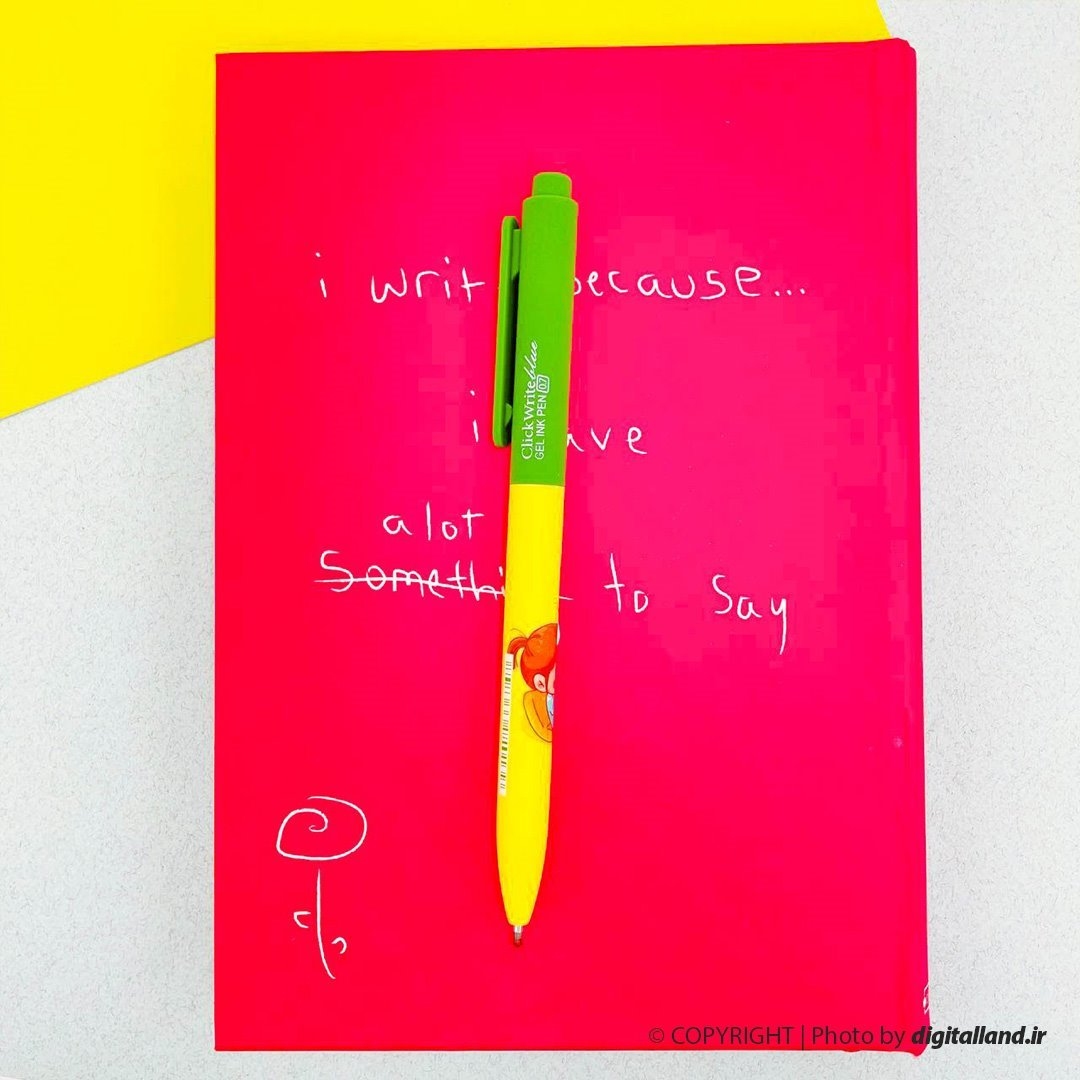 i writ because...
i ave
a lot
Somethi to say
ClickWrite blue
GEL INK PEN 0.7
© COPYRIGHT | Photo by digitalland.ir